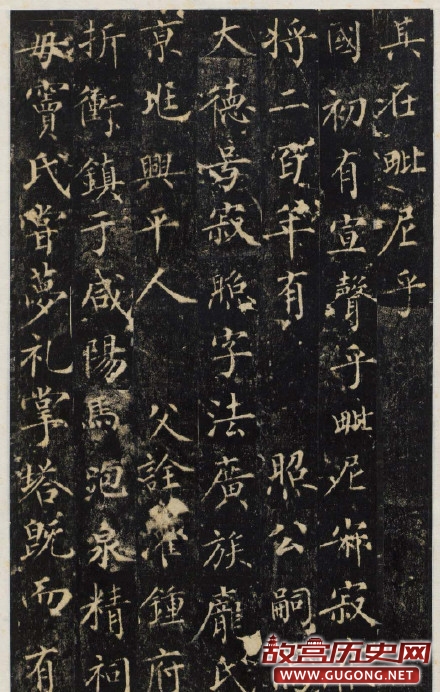 其在毗尼乎
國初有宣聲乎毗尼寂
将二百年有 照公嗣
大德号寂照字法廣族龐氏
京兆興平人 父詮鍾府
折衝鎮于咸陽馬泡泉精祠
母竇氏嘗夢礼掌塔既而有
故宫历史网
WWW.GUGONG.NET